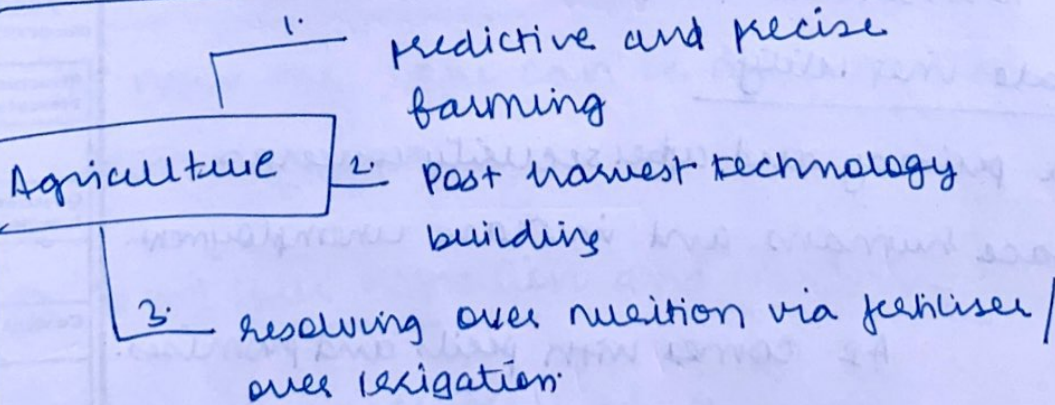 1. predictive and precise
farming
Agriculture
2. Post harvest technology
building
3. resolving over nutrition via fertiliser /
over irrigation.